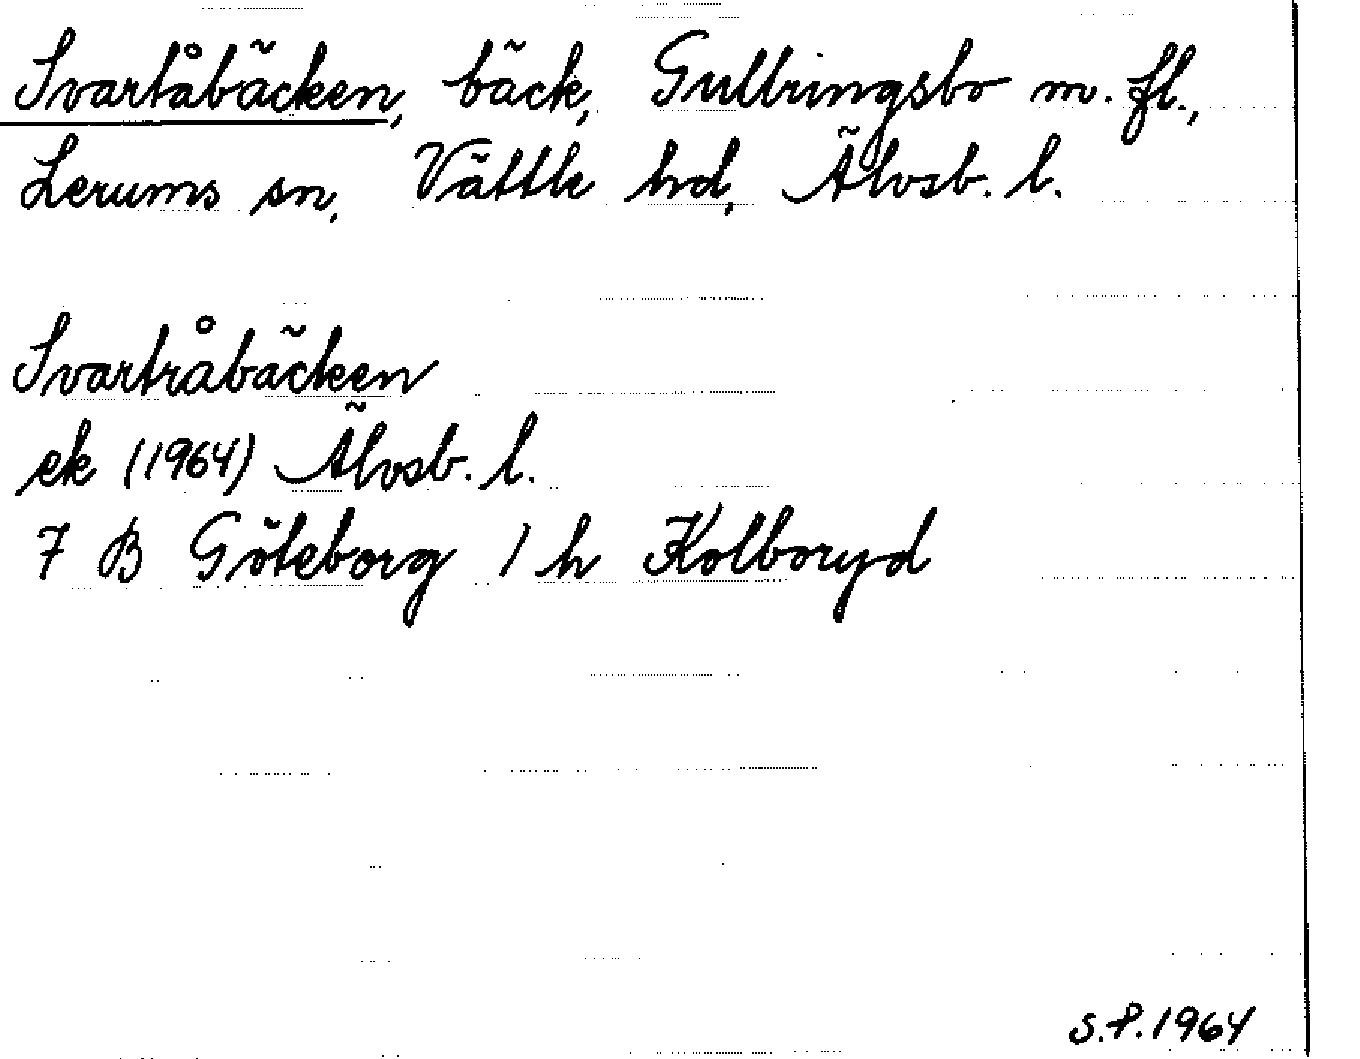 Svartåbäcken, bäck, Gullringsbo m. fl.,
Lerums sn, Vättle hd, Älvsb. l.
Svartråbäcken
ek (1964) Älvsb. l.
7 B Göteborg 1 h Kolboryd
S.F. 1964